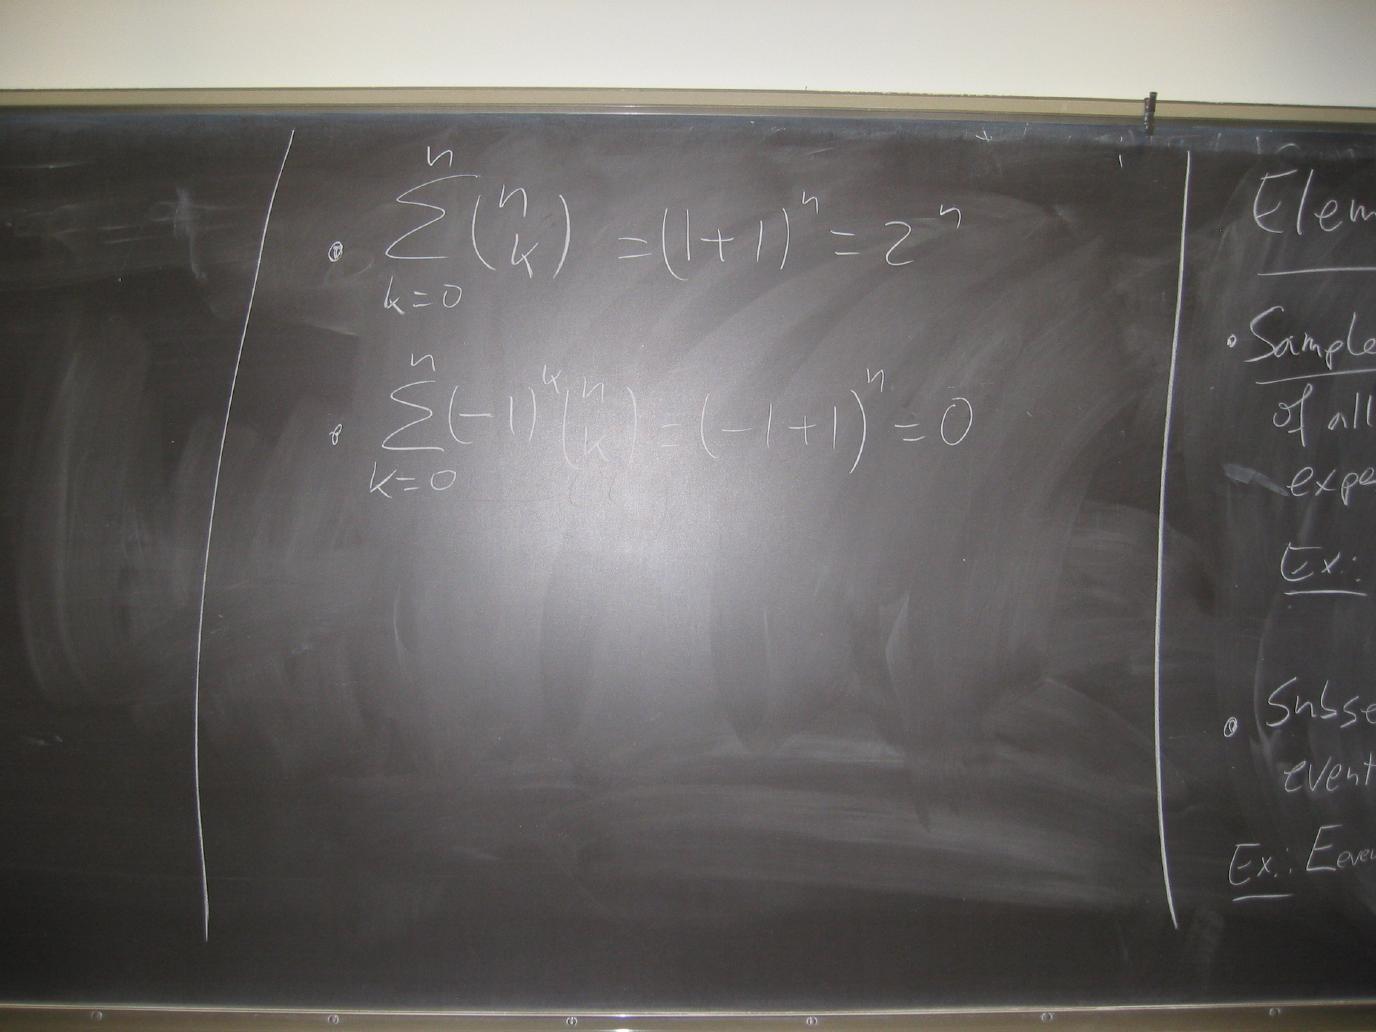 • \sum_{k=0}^{n} \binom{n}{k} = (1+1)^n = 2^n
• \sum_{k=0}^{n} (-1)^k \binom{n}{k} = (-1+1)^n = 0
Elem
• Sample
of all
expe
Ex.:
• Subse
event
Ex.: Eeven